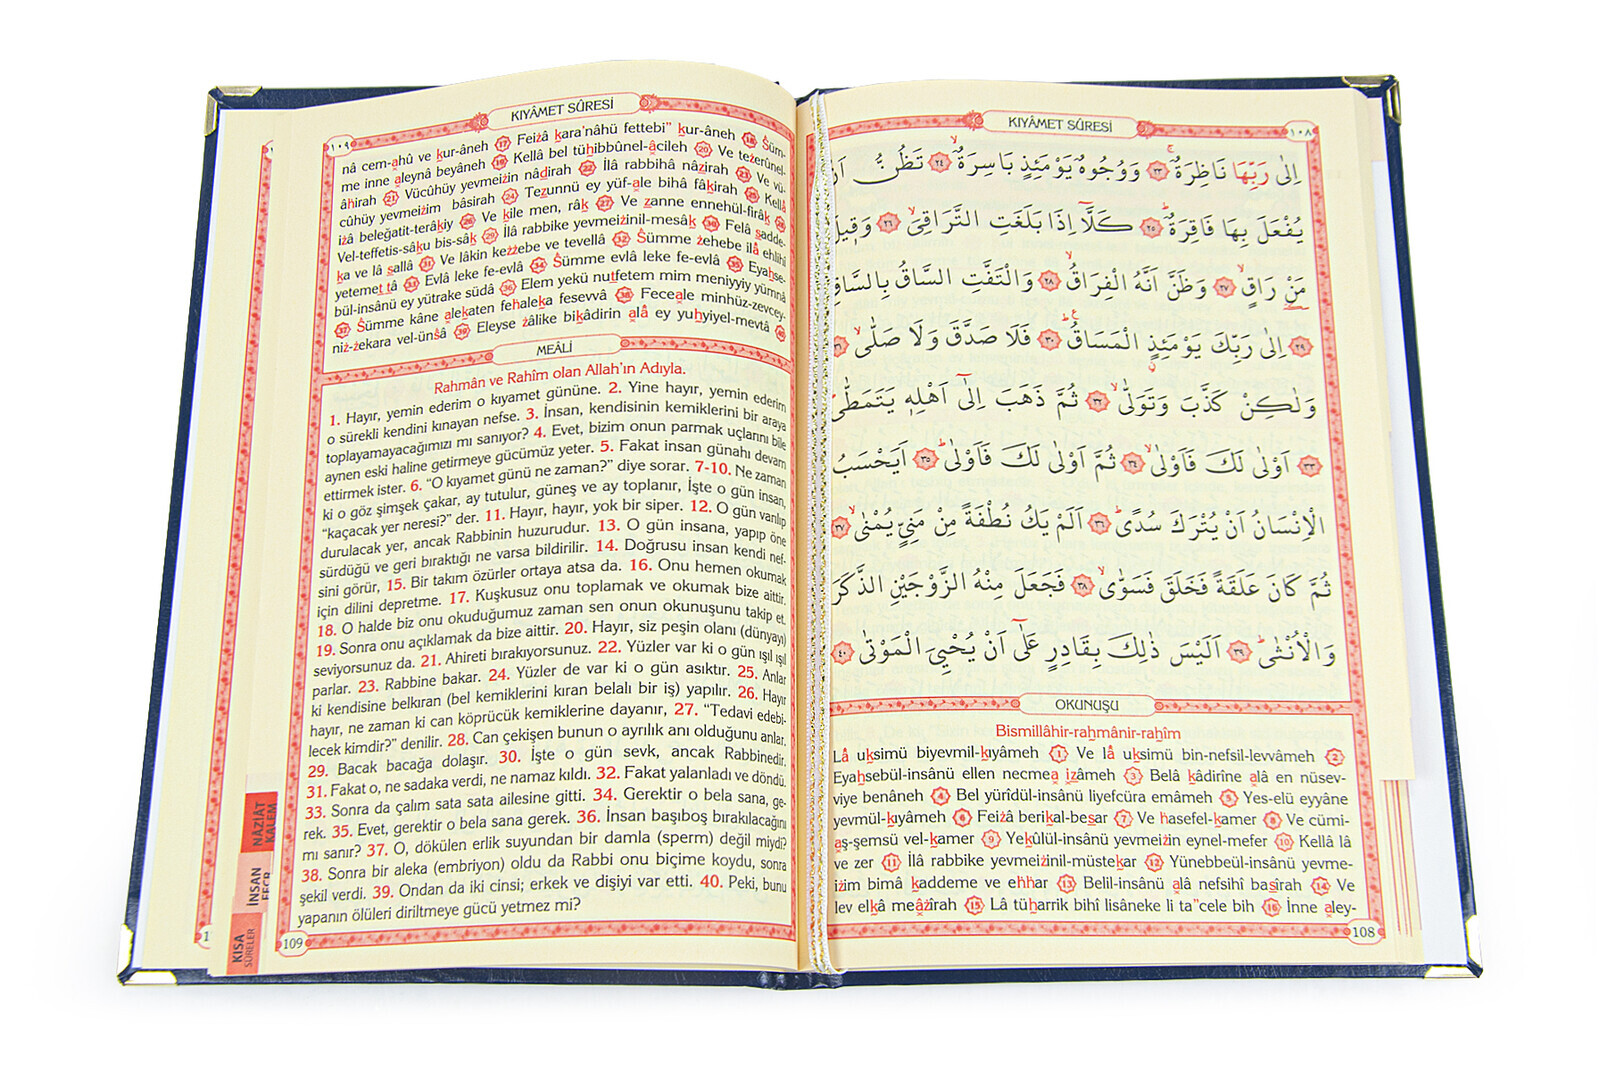 KIYÂMET SÛRESİ
١٠٨
اِلٰى رَبِّهَا نَاظِرَةٌۚ ٢٣ وَوُجُوهٌ يَوْمَئِذٍ بَاسِرَةٌۙ ٢٤ تَظُنُّ اَنْ
يُفْعَلَ بِهَا فَاقِرَةٌۜ ٢٥ كَلَّٓا اِذَا بَلَغَتِ التَّرَاقِيَۙ ٢٦ وَق۪يلَ
مَنْ رَاقٍۙ ٢٧ وَظَنَّ اَنَّهُ الْفِرَاقُۙ ٢٨ وَالْتَفَّتِ السَّاقُ بِالسَّاقِۙ
٢٩ اِلٰى رَبِّكَ يَوْمَئِذٍۨ الْمَسَاقُۜ ٣٠ فَلَا صَدَّقَ وَلَا صَلّٰىۙ ٣١
وَلٰكِنْ كَذَّبَ وَتَوَلّٰىۙ ٣٢ ثُمَّ ذَهَبَ اِلٰٓى اَهْلِه۪ يَتَمَطّٰىۜ
٣٣ اَوْلٰى لَكَ فَاَوْلٰىۙ ٣٤ ثُمَّ اَوْلٰى لَكَ فَاَوْلٰىۜ ٣٥ اَيَحْسَبُ
الْاِنْسَانُ اَنْ يُتْرَكَ سُدًىۜ ٣٦ اَلَمْ يَكُ نُطْفَةً مِنْ مَنِيٍّ يُمْنٰىۙ ٣٧
ثُمَّ كَانَ عَلَقَةً فَخَلَقَ فَسَوّٰىۙ ٣٨ فَجَعَلَ مِنْهُ الزَّوْجَيْنِ الذَّكَرَ
وَالْاُنْثٰىۜ ٣٩ اَلَيْسَ ذٰلِكَ بِقَادِرٍ عَلٰٓى اَنْ يُحْيِيَ الْمَوْتٰى ٤٠
OKUNUŞU
Bismillâhir-rahmânir-rahîm
Lâ uksimü biyevmil-kıyâmeh 1 Ve lâ uksimü bin-nefsil-levvâmeh 2
Eyahsebül-insânü ellen necmea ızâmeh 3 Belâ kâdirîne alâ en nüsev-
viye benâneh 4 Bel yürîdül-insânü liyefcüra emâmeh 5 Yes-elü eyyâne
yevmül-kıyâmeh 6 Feiżâ berikal-besar 7 Ve hasefel-kamer 8 Ve cümi-
aş-şemsü vel-kamer 9 Yekûlül-insânü yevmeiżin eynel-mefer 10 Kellâ lâ
ve zer 11 İlâ rabbike yevmeiżinil-müstekar 12 Yünebbeül-insânü yevme-
iżim bimâ kaddeme ve ehhar 13 Belil-insânü alâ nefsihî basîrah 14 Ve
lev elkâ meâżîrah 15 Lâ tüharrik bihî lisâneke li ta"cele bih 16 İnne aley-
108
KIYÂMET SÛRESİ
١٠٩
nâ cem-ahû ve kur-âneh 17 Feiżâ kara'nâhü fettebi" kur-âneh 18 Śüm-
me inne aleynâ beyâneh 19 Kellâ bel tühibbûnel-âcileh 20 Ve teżerûnel-
âhirah 21 Vücûhüy yevmeiżin nâdirah 22 İlâ rabbihâ nâzirah 23 Ve vü-
cûhüy yevmeiżim bâsirah 24 Tezunnü ey yüf-ale bihâ fâkirah 25 Kellâ
iżâ beleğatit-terâkiy 26 Ve kile men, râk 27 Ve zanne ennehül-firâk 28
Vel-teffetis-sâku bis-sâk 29 İlâ rabbike yevmeiżinil-mesâk 30 Felâ sadde-
ka ve lâ sallâ 31 Ve lâkin keżżebe ve tevellâ 32 Śümme żehebe ilâ ehlihî
yetemettâ 33 Evlâ leke fe-evlâ 34 Śümme evlâ leke fe-evlâ 35 Eyahse-
bül-insânü ey yütrake südâ 36 Elem yekü nutfetem mim meniyyiy yümnâ
37 Śümme kâne alekaten fehaleka fesevvâ 38 Feceale minhüz-zevcey-
niż-żekara vel-ünśâ 39 Eleyse żâlike bikâdirin alâ ey yuhyiyel-mevtâ 40
MEÂLİ
Rahmân ve Rahîm olan Allah'ın Adıyla.
1. Hayır, yemin ederim o kıyamet gününe. 2. Yine hayır, yemin ederim
o sürekli kendini kınayan nefse. 3. İnsan, kendisinin kemiklerini bir araya
toplayamayacağımızı mı sanıyor? 4. Evet, bizim onun parmak uçlarını bile
aynen eski haline getirmeye gücümüz yeter. 5. Fakat insan günahı devam
ettirmek ister. 6. “O kıyamet günü ne zaman?” diye sorar. 7-10. Ne zaman
ki o göz şimşek çakar, ay tutulur, güneş ve ay toplanır, İşte o gün insan,
“kaçacak yer neresi?” der. 11. Hayır, hayır, yok bir siper. 12. O gün varılıp
durulacak yer, ancak Rabbinin huzurudur. 13. O gün insana, yapıp öne
sürdüğü ve geri bıraktığı ne varsa bildirilir. 14. Doğrusu insan kendi nef-
sini görür, 15. Bir takım özürler ortaya atsa da. 16. Onu hemen okumak
için dilini depretme. 17. Kuşkusuz onu toplamak ve okumak bize aittir.
18. O halde biz onu okuduğumuz zaman sen onun okunuşunu takip et.
19. Sonra onu açıklamak da bize aittir. 20. Hayır, siz peşin olanı (dünyayı)
seviyorsunuz da. 21. Ahireti bırakıyorsunuz. 22. Yüzler var ki o gün ışıl ışıl
parlar. 23. Rabbine bakar. 24. Yüzler de var ki o gün asıktır. 25. Anlar
ki kendisine belkıran (bel kemiklerini kıran belalı bir iş) yapılır. 26. Hayır
hayır, ne zaman ki can köprücük kemiklerine dayanır, 27. “Tedavi edebi-
lecek kimdir?” denilir. 28. Can çekişen bunun o ayrılık anı olduğunu anlar.
29. Bacak bacağa dolaşır. 30. İşte o gün sevk, ancak Rabbinedir.
31. Fakat o, ne sadaka verdi, ne namaz kıldı. 32. Fakat yalanladı ve döndü.
33. Sonra da çalım sata sata ailesine gitti. 34. Gerektir o bela sana, ge-
rek. 35. Evet, gerektir o bela sana gerek. 36. İnsan başıboş bırakılacağını
mı sanır? 37. O, dökülen erlik suyundan bir damla (sperm) değil miydi?
38. Sonra bir aleka (embriyon) oldu da Rabbi onu biçime koydu, sonra
şekil verdi. 39. Ondan da iki cinsi; erkek ve dişiyi var etti. 40. Peki, bunu
yapanın ölüleri diriltmeye gücü yetmez mi?
109
NÂZİÂT
KALEM
İNSAN
FECR
KISA
SÛRELER